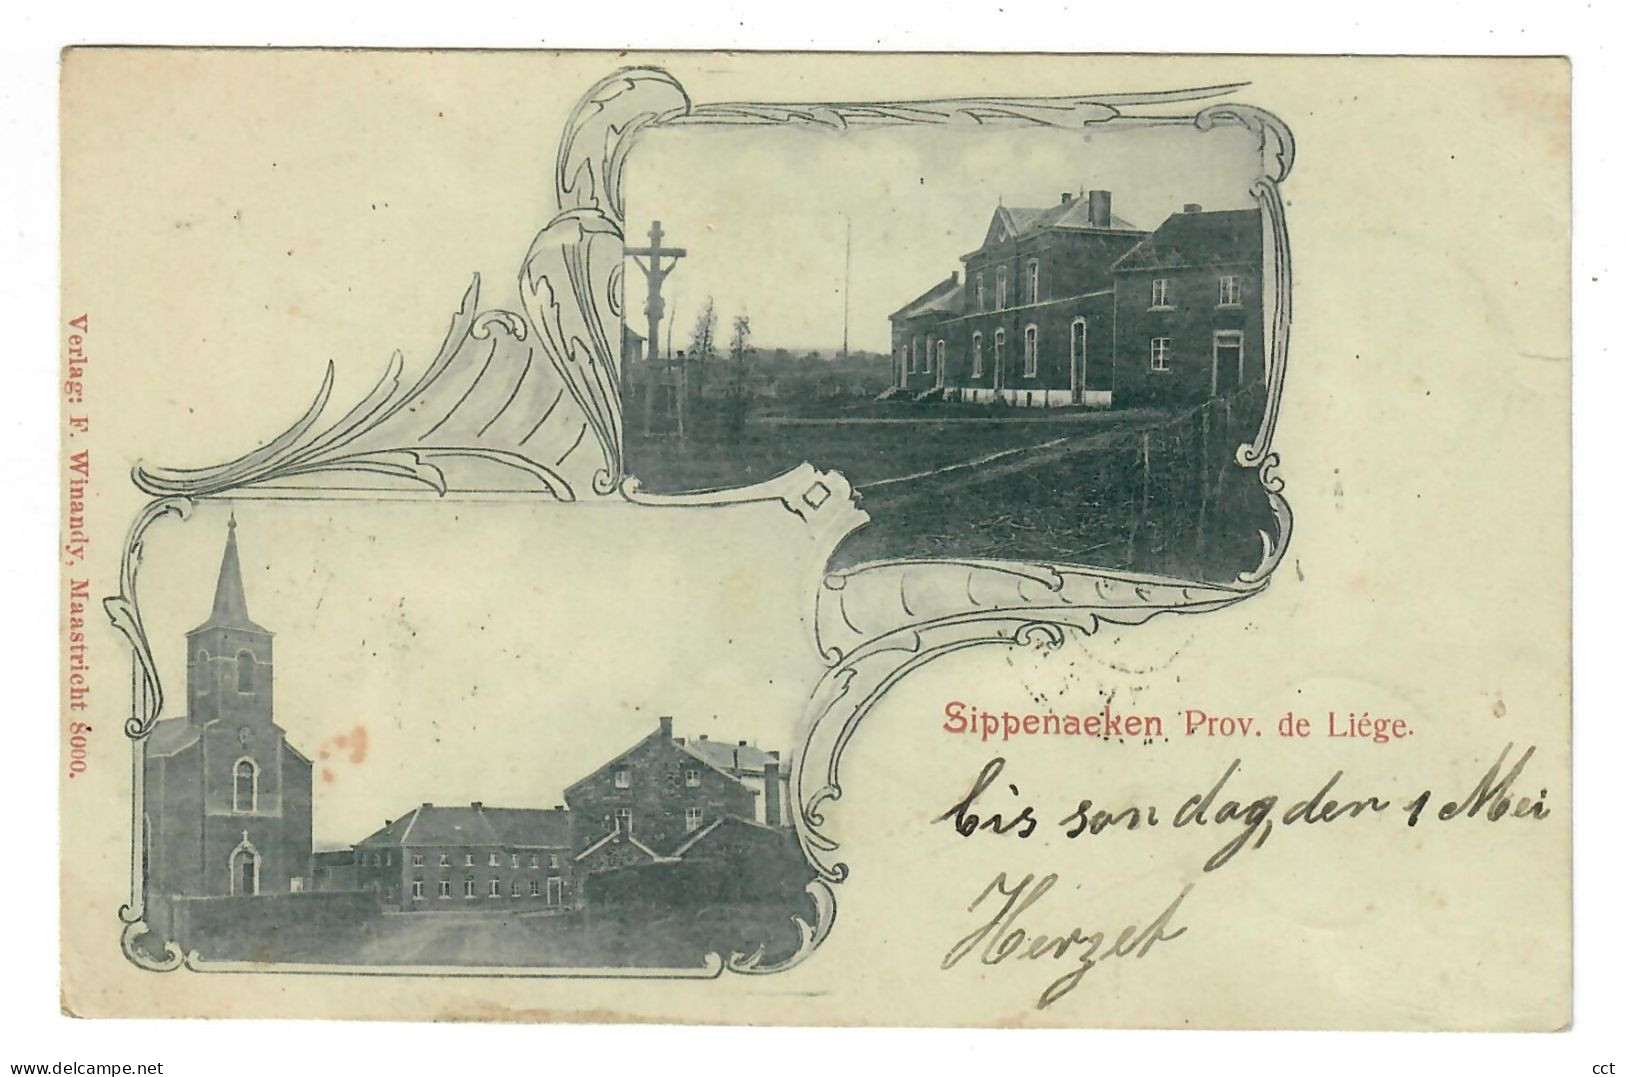 Verlag: F. Winandy, Maastricht 8000.
Sippenaeken Prov. de Liége.
bis sondag, den 1 Mei
Herzet
www.delcampe.net
cct